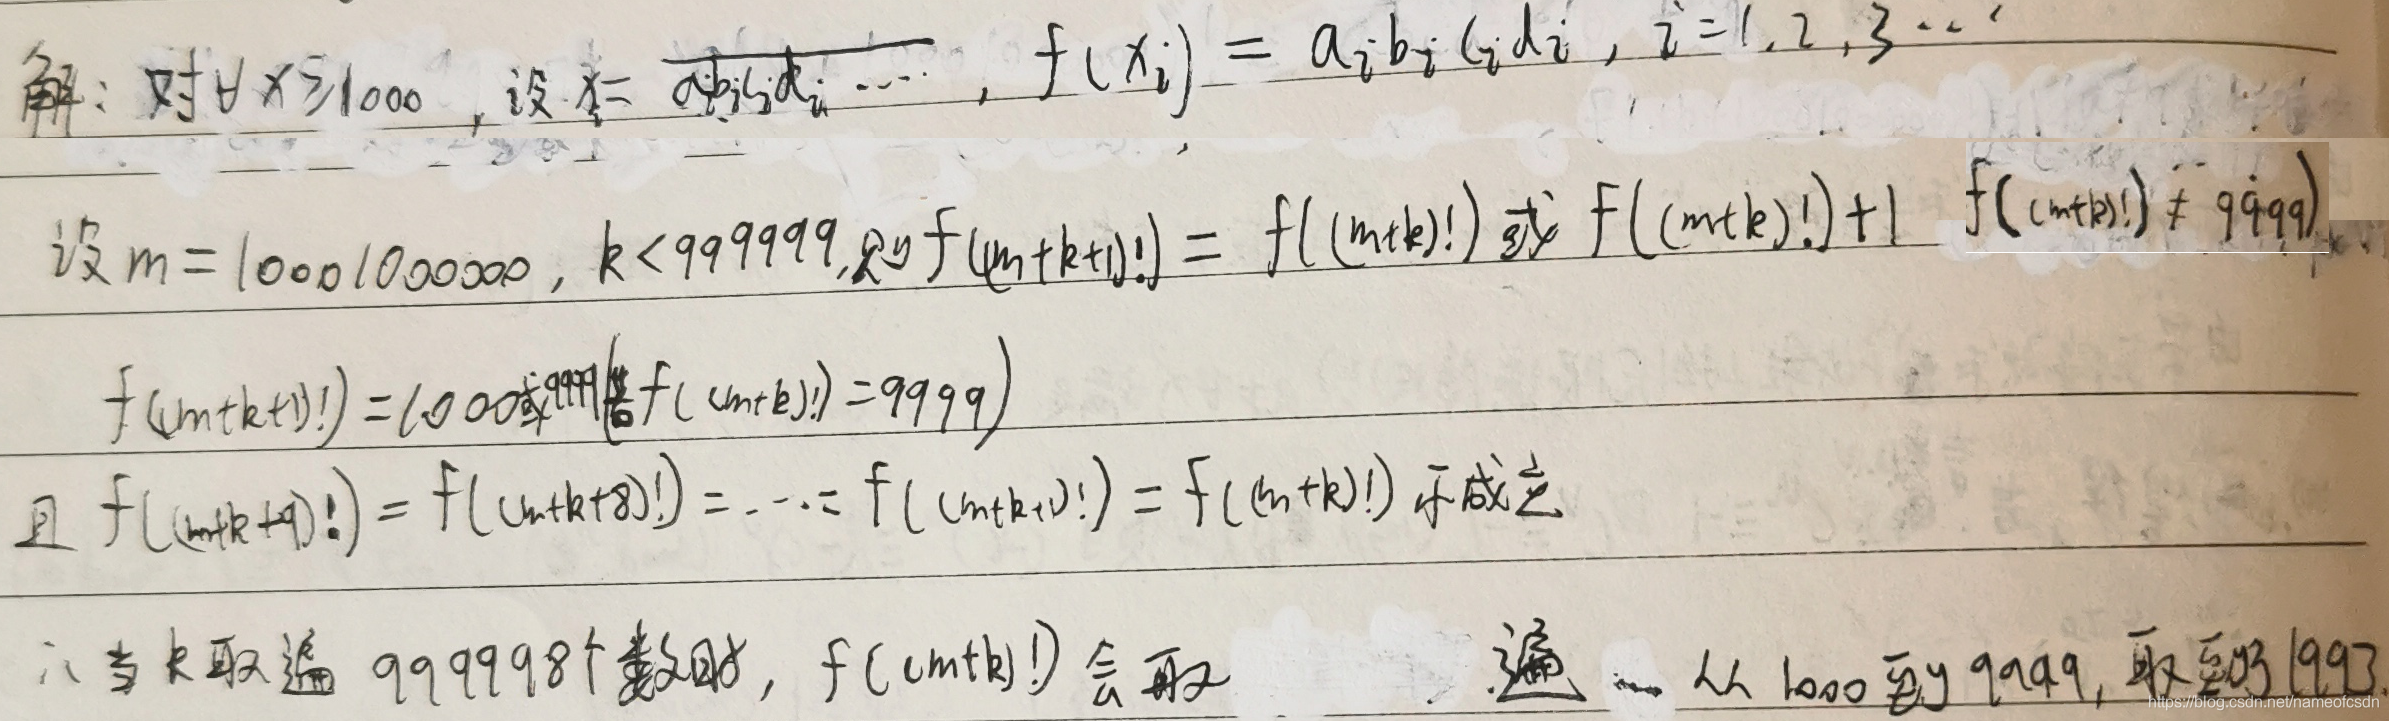 解：对∀x≥1000，设xᵢ=aᵢbᵢcᵢdᵢ……，f(xᵢ)=aᵢbᵢcᵢdᵢ，i=1,2,3……
设m=10001000000，k<999999，则f((m+k+1)!)=f((m+k)!)或f((m+k)!)+1 f((m+k)!)≠9999)
f((m+k+1)!)=1000或9999(若f((m+k)!)=9999)
且f((m+k+9)!)=f((m+k+8)!)=……=f((m+k+1)!)=f((m+k)!)不成立
∴当k取遍999998个数时，f((m+k)!)会取遍 从1000到9999，取到1993.
https://blog.csdn.net/nameofcsdn